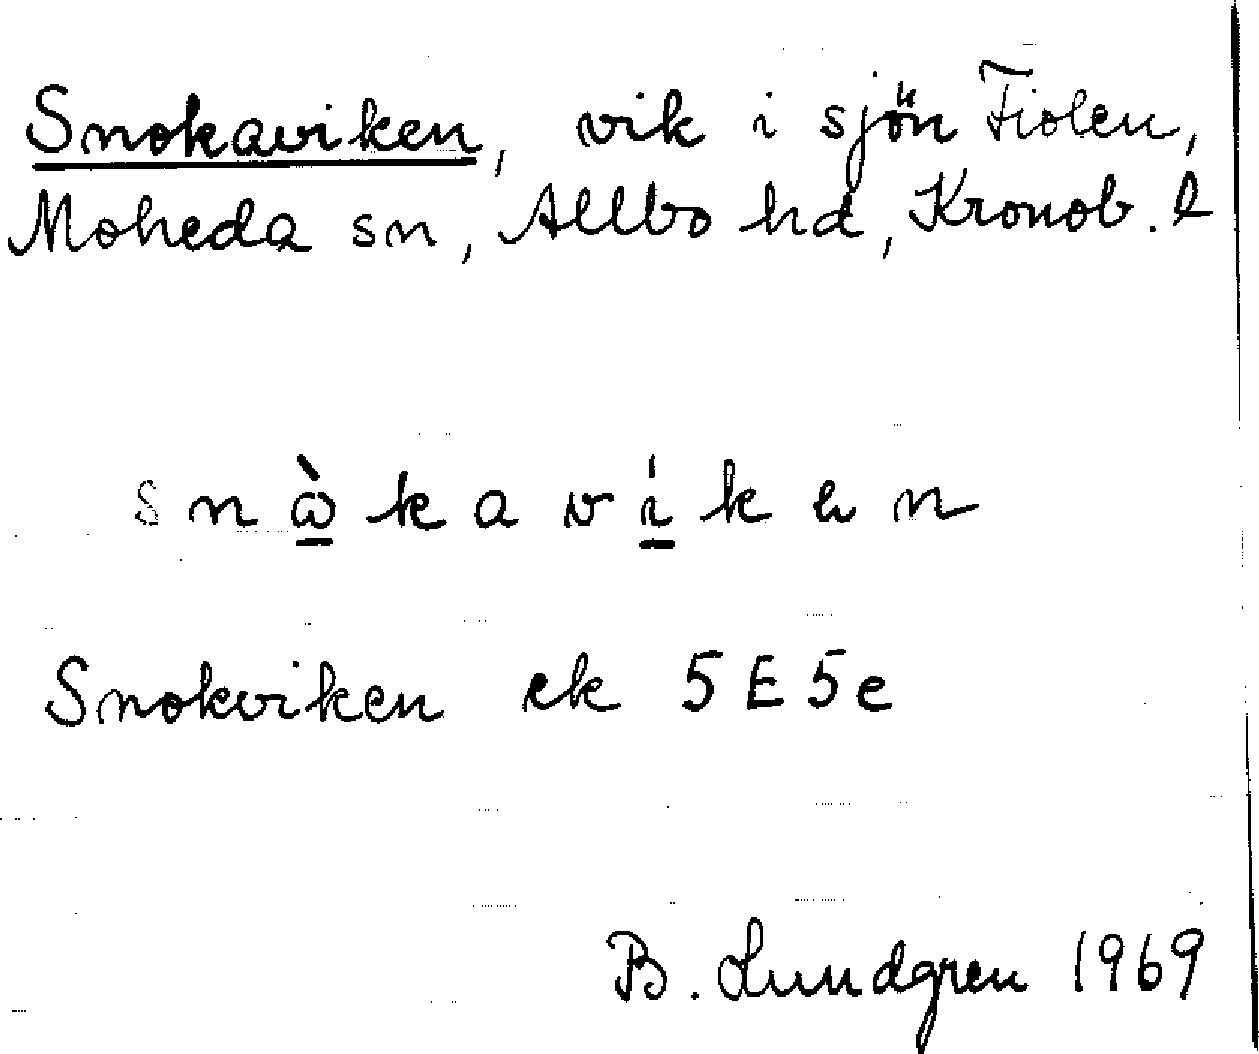 Snokaviken, vik i sjön Fiolen,
Moheda sn, Allbo hd, Kronob. l
s n ὼ̲ k a v í̲ k ə n
Snokviken ek 5E5e
B. Lundgren 1969